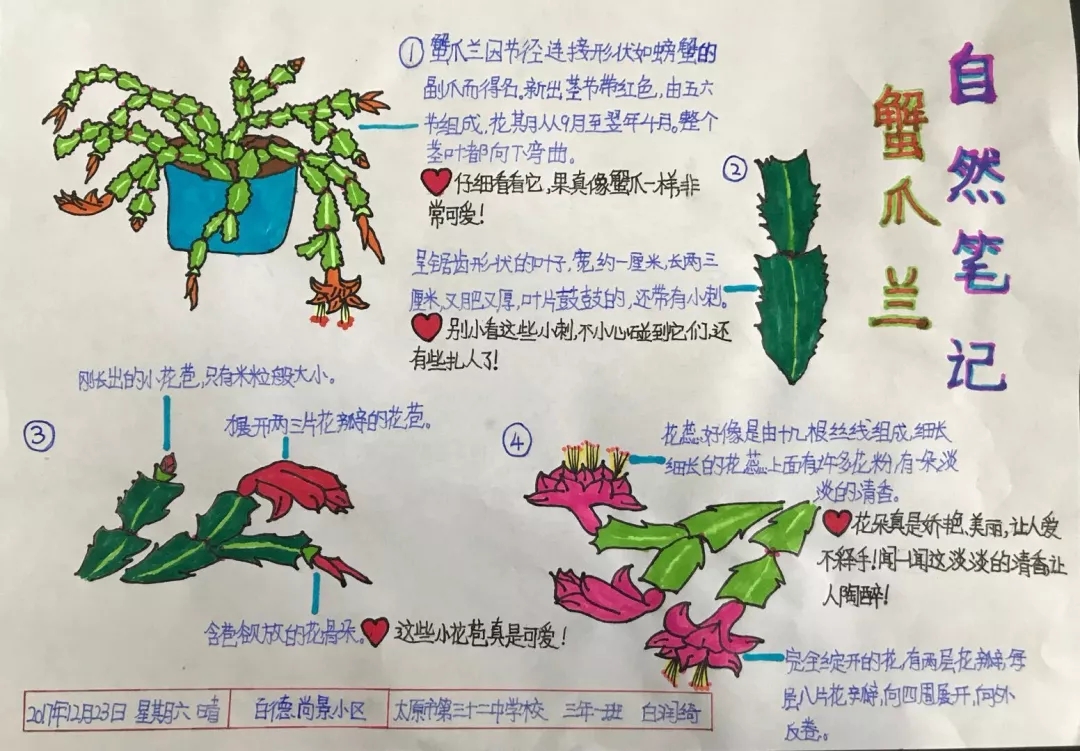 自然笔记
蟹爪兰
① 蟹爪兰因节径连接形状如螃蟹的
副爪而得名。新出茎节带红色,由五六
节组成,花期从9月至翌年4月。整个
茎叶都向下弯曲。
仔细看看它,果真像蟹爪一样非
常可爱!
②
呈锯齿形状的叶子,宽约一厘米,长两三
厘米,又肥又厚,叶片鼓鼓的,还带有小刺。
别小看这些小刺,不小心碰到它们,还
有些扎人了!
③
刚长出的小花苞,只有米粒般大小。
展开两三片花瓣的花苞。
含苞欲放的花骨朵。
这些小花苞真是可爱!
④
花蕊好像是由十几根丝线组成,细长
细长的花蕊上面有许多花粉,有一朵淡
淡的清香。
花朵真是娇艳、美丽,让人爱
不释手!闻一闻这淡淡的清香让
人陶醉!
完全绽开的花,有两层花瓣,每
层八片花瓣,向四周展开,向外
反卷。
2017年12月23日 星期六 晴
百德尚景小区
太原市第三十二中学校 三年一班 白润绮